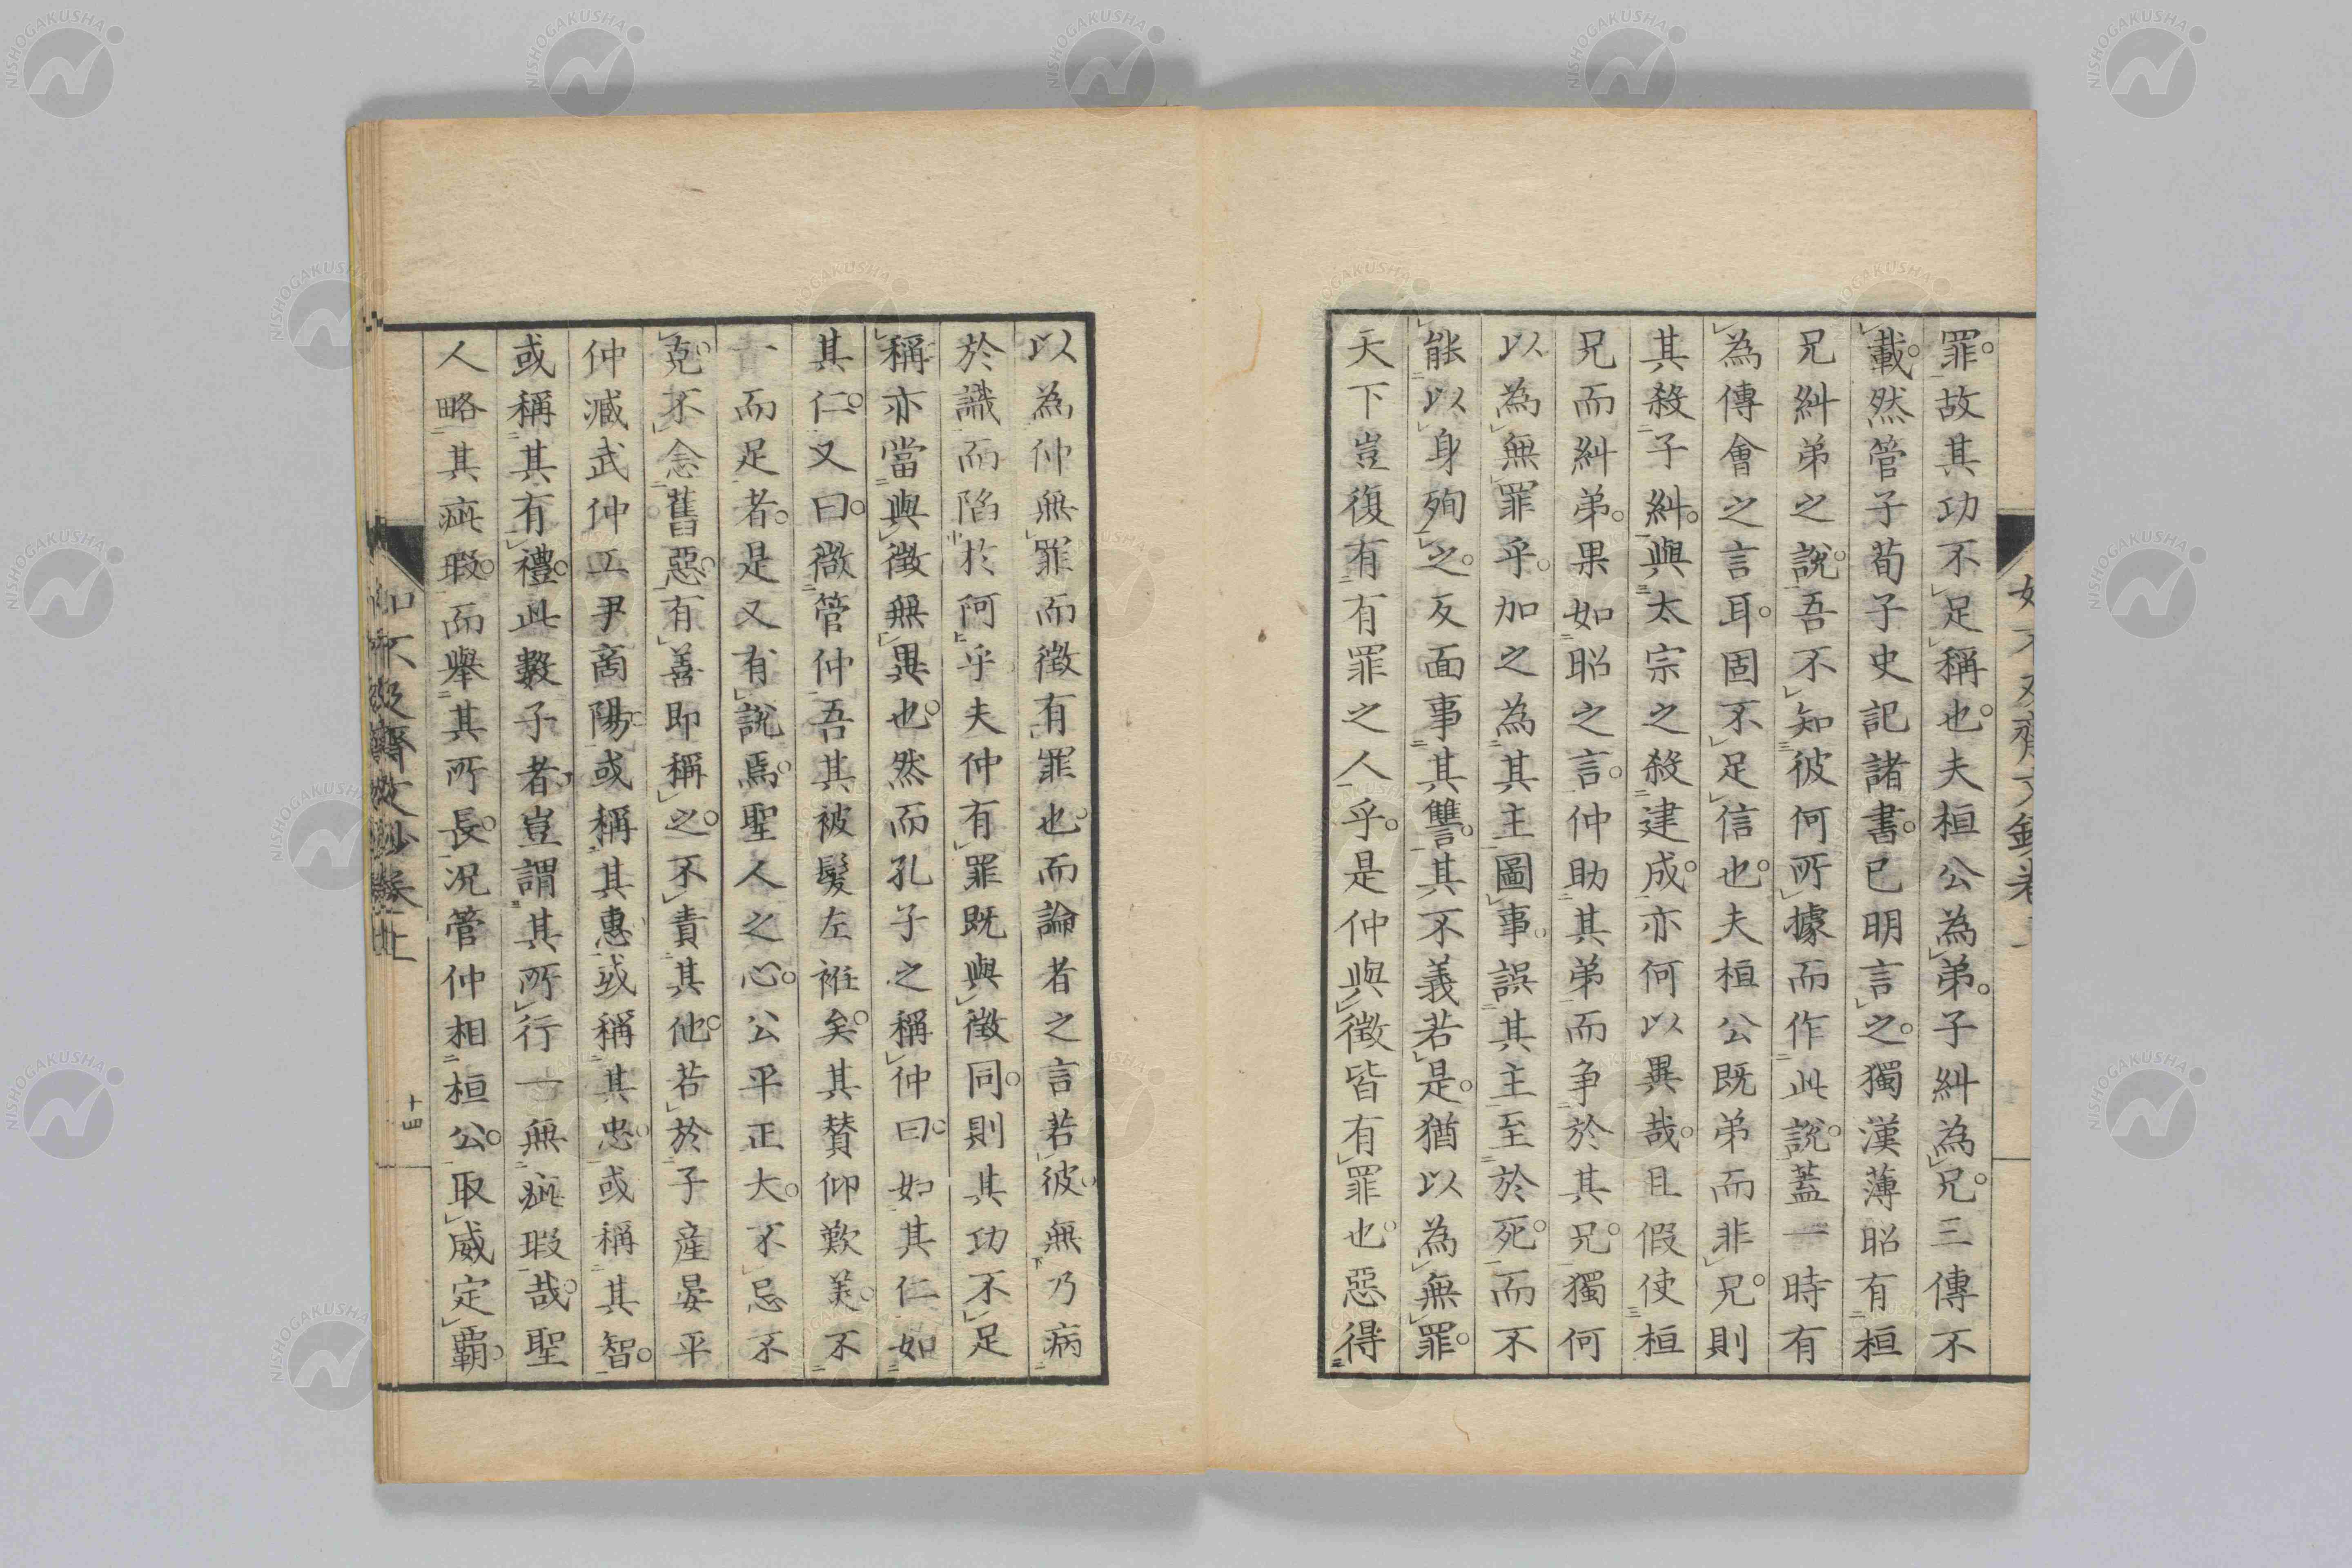 罪。故其功不足稱也。夫桓公為弟。子糾為兄。三傳不
載。然管子荀子史記諸書。已明言之。獨漢薄昭有桓
兄糾弟之說。吾不知彼何所據而作此說。蓋一時有
為傳會之言耳。固不足信也。夫桓公既弟而非兄。則
其殺子糾。與太宗之殺建成。亦何以異哉。且假使桓
兄而糾弟。果如昭之言。仲助其弟而争於其兄。獨何
以為無罪乎。加之為其主圖事。誤其主至於死。而不
能以身殉之。反面事其讐。其不義若是。猶以為無罪。
天下豈復有有罪之人乎。是仲與徴皆有罪也。惡得
以為仲無罪而徴有罪也。而論者之言若彼。無乃病
於識而陷於阿乎。夫仲有罪既與徴同。則其功不足
稱亦當與徴無異也。然而孔子之稱仲曰。如其仁如
其仁。又曰。微管仲吾其被髮左衽矣。其賛仰歎美。不
一而足者。是又有說焉。聖人之心。公平正大。不忌不
克。不念舊惡。有善即稱之。不責其他。若於子產晏平
仲臧武仲工尹商陽。或稱其惠或稱其忠。或稱其智。
或稱其有禮。此數子者。豈謂其所行一無疵瑕哉。聖
人略其疵瑕。而舉其所長。況管仲相桓公。取威定覇。
十四
NISHOGAKUSHA